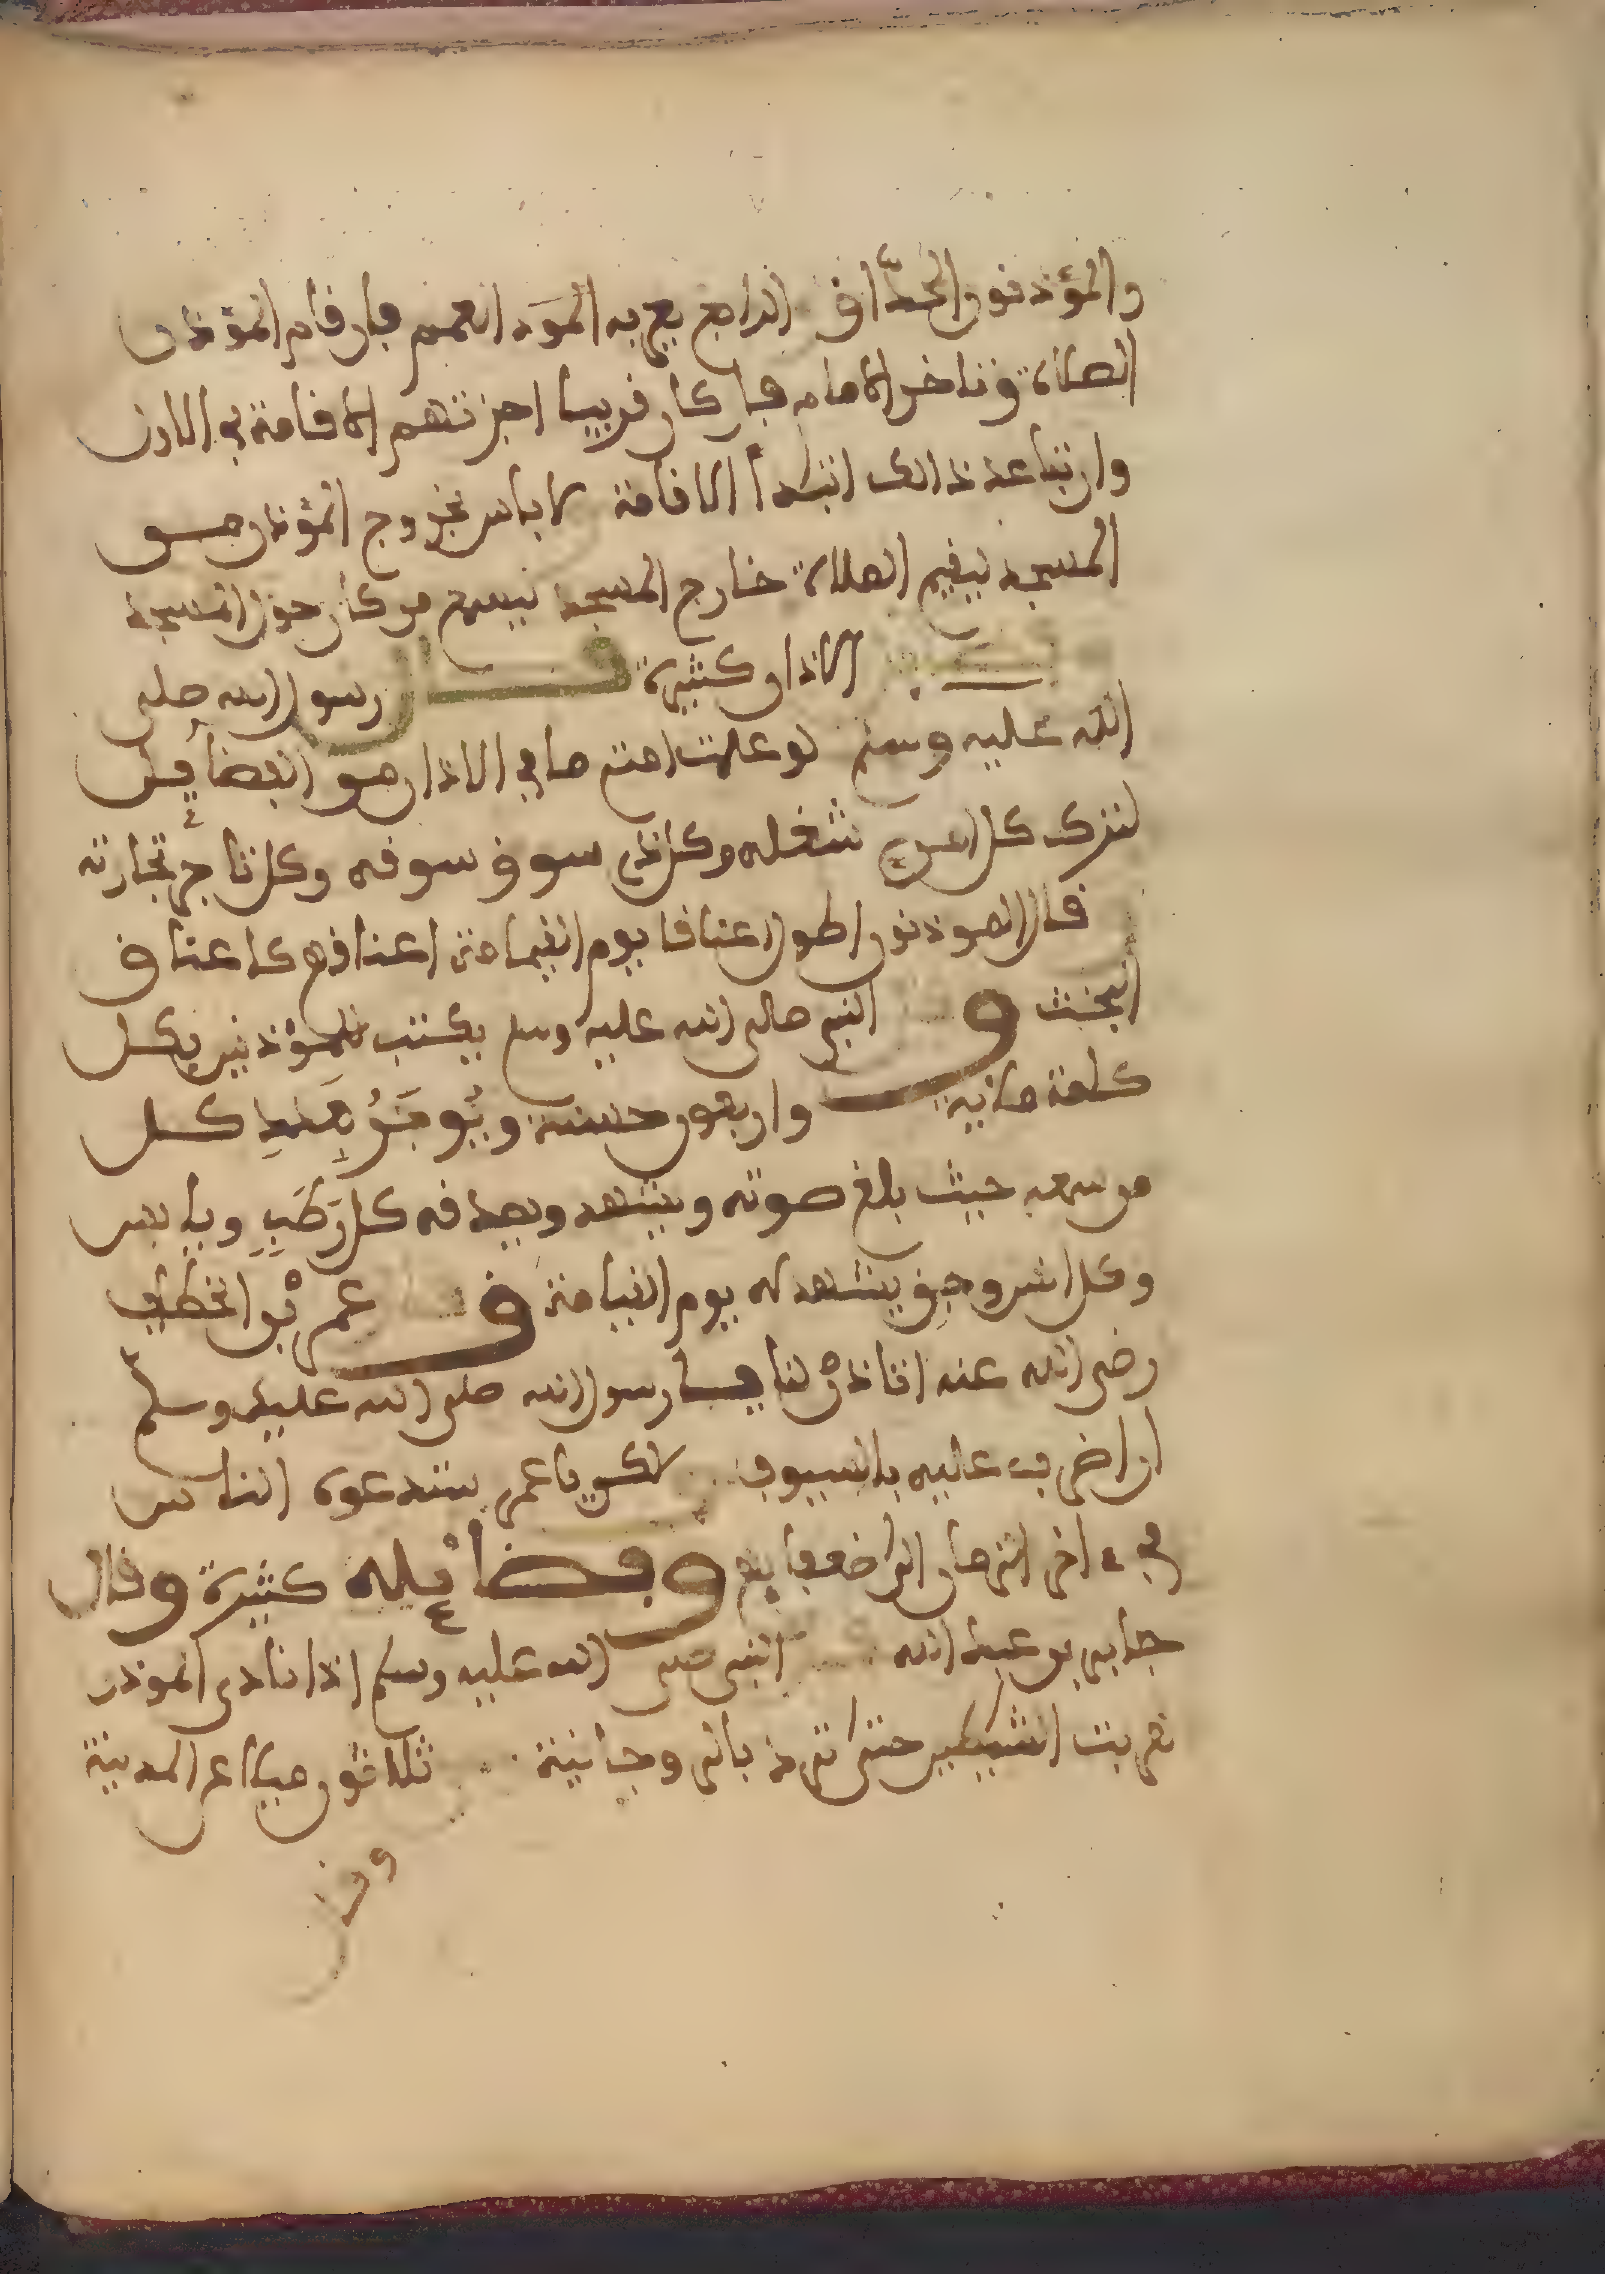 والمؤذنون الحذّاق الرابع يعربه المؤذ انعمهم فان قام المؤذن
الصلاة وتاخر الامام فان كان قريبا اجزتهم الاقامة في الاذن
وان تباعد ذالك ابتدأ الاقامة لا باس بخروج المؤذن من
المسجد ليقيم الصلاة خارج المسجد ليسمع من كان حول المسجد
الاذان كثيرة قال رسول الله صلى
الله عليه وسلم لو علمت امتي ما في الاذان من الفضائل
لترك كل شغله وكل ذي سوق سوقه وكل تاجر تجارته
قال المؤذنون اطول اعناقا يوم القيامة اعناقهم كاعناق
البخت وق النبي صلى الله عليه وسلم يكتب للمؤذنين بكل
كلمة مائة واربعون حسنة ويوجر بعدد كل
من سمعه حيث بلغ صوته ويشهد ويصدقه كل رطب ويابس
وكل انس وجن يشهد له يوم القيامة ق عمر بن الخطاب
رضي الله عنه اتاذن لنا يا رسول الله صلى الله عليه وسلم
ان اضرب عليه بالسيوف لاكن يا عمر ستدعوه الناس
في ءاخر الزمان الى ضعفايهم وفضائله كثيرة وقال
جابر بن عبد الله النبي صلى الله عليه وسلم اذا نادى الموذن
هربت الشيطين حتى بالروحا نية ثلاثون ميلا عن المدينة